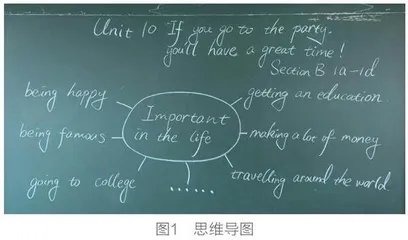 Unit 10 If you go to the party,
you'll have a great time!
Section B 1a-1d
being happy
getting an education
Important
in the life
being famous
making a lot of money
going to college
travelling around the world
......
图1 思维导图